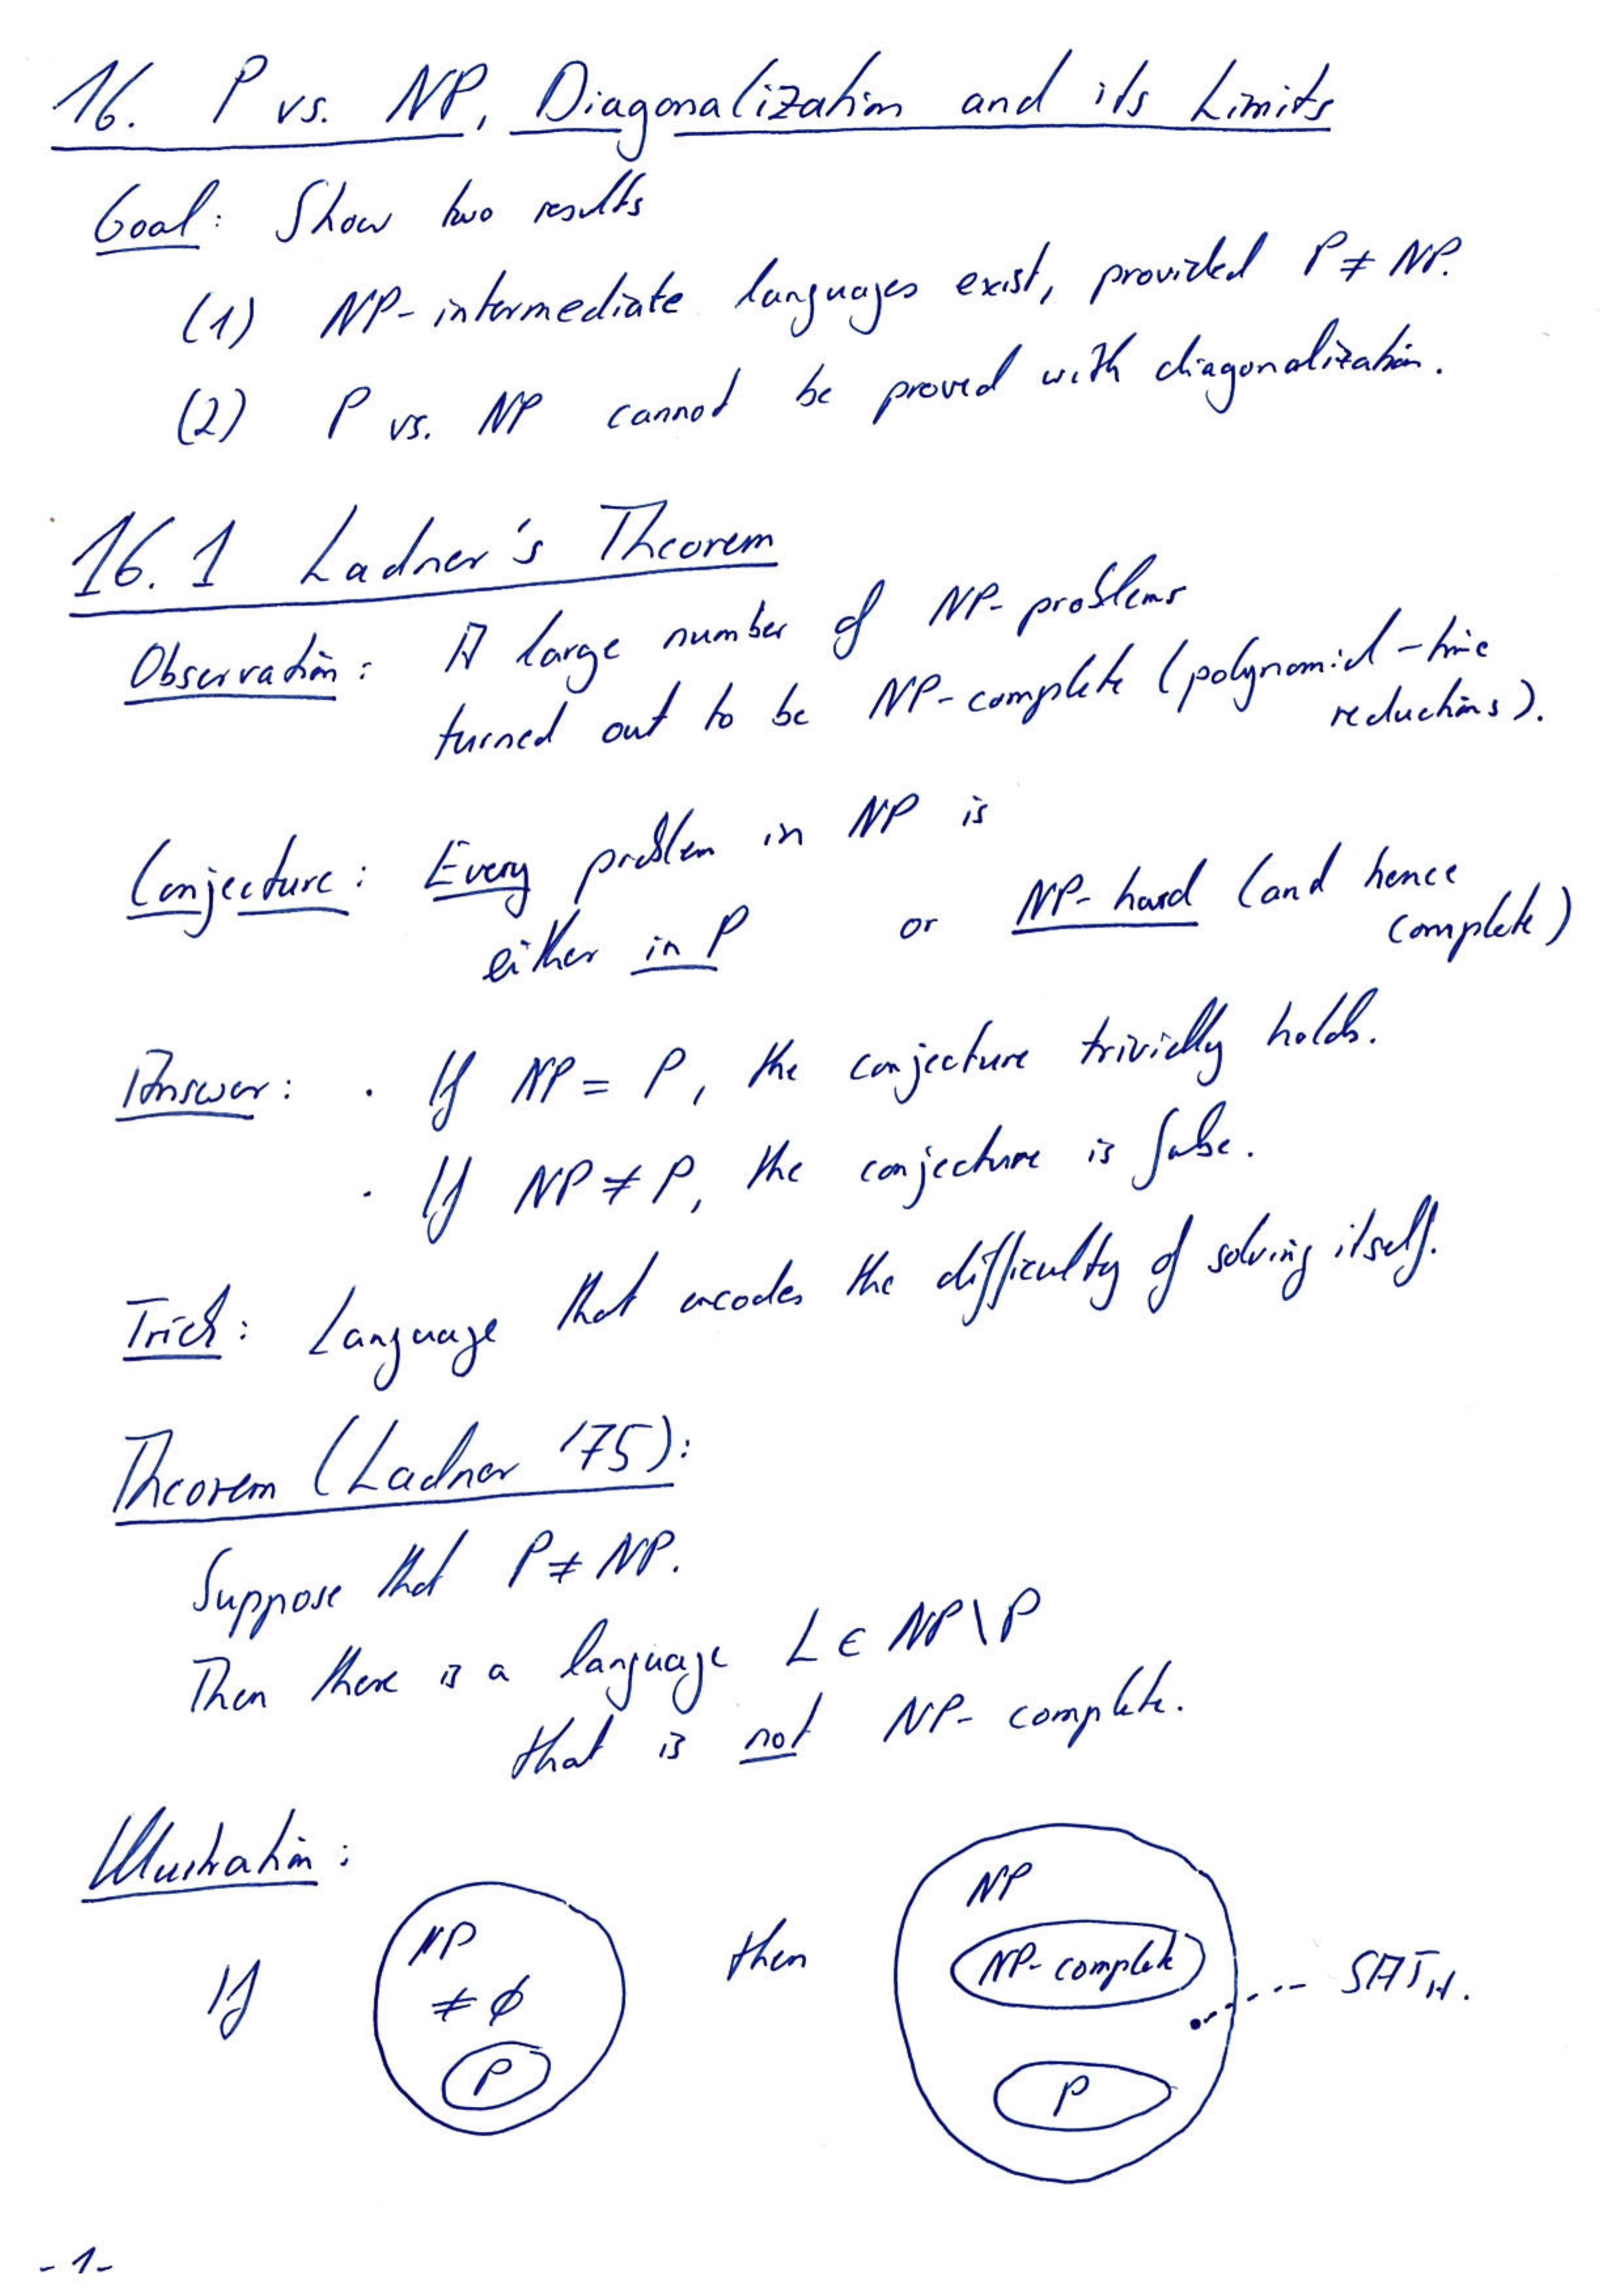 16. P vs. NP, Diagonalization and its Limits
Goal: Show two results
(1) NP-intermediate languages exist, provided P ≠ NP.
(2) P vs. NP cannot be proved with diagonalization.
16.1 Ladner's Theorem
Observation: A large number of NP-problems
turned out to be NP-complete (polynomial-time
reductions).
Conjecture: Every problem in NP is
either in P or NP-hard (and hence
complete)
Answer: · If NP = P, the conjecture trivially holds.
· If NP ≠ P, the conjecture is false.
Trick: Language that encodes the difficulty of solving itself.
Theorem (Ladner '75):
Suppose that P ≠ NP.
Then there is a language L ∈ NP\P
that is not NP-complete.
Illustration:
If
NP
≠ ∅
P
then
NP
NP-complete
P
SAT_H.
-1-